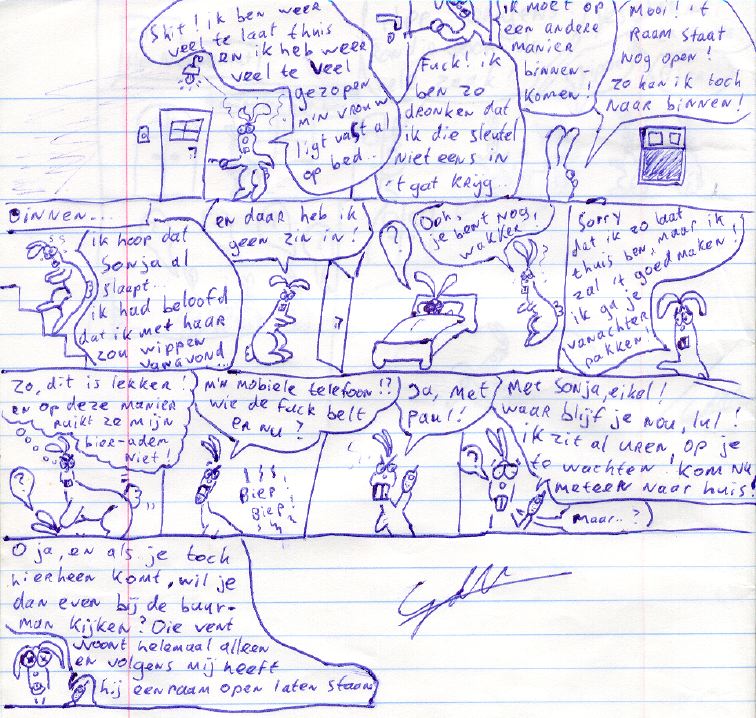 Shit! ik ben weer
veel te laat thuis
en ik heb weer
veel te veel
gezopen
m'n vrouw
ligt vast al
op bed..
Fuck! ik
ben zo
dronken dat
ik die sleutel
niet eens in
't gat krijg..
ik moet op
een andere
manier
binnen-
komen!
Mooi! 't
raam staat
nog open!
zo kan ik toch
naar binnen!
Binnen...
ik hoop dat
Sonja al
slaapt..
ik had beloofd
dat ik met haar
zou wippen
vanavond..
en daar heb ik
geen zin in!
?
Ooh,
je bent nog,
wakker
Sorry
dat ik zo laat
thuis ben, maar ik
zal 't goed maken!
ik ga je
vanachter
pakken!
Zo, dit is lekker!
en op deze manier
ruikt ze mijn
bier-adem
niet!
?
m'n mobiele telefoon!?
wie de fuck belt
er nu?
Biep!
Biep!
Ja, met
Paul!
?
Met Sonja, eikel!
waar blijf je nou, lul!
ik zit al uren, op je
te wachten! Kom nu
meteen naar huis!
Maar..?
O ja, en als je toch
hierheen komt, wil je
dan even bij de buur-
man kijken? Die vent
woont helemaal alleen
en volgens mij heeft
hij een raam open laten staan